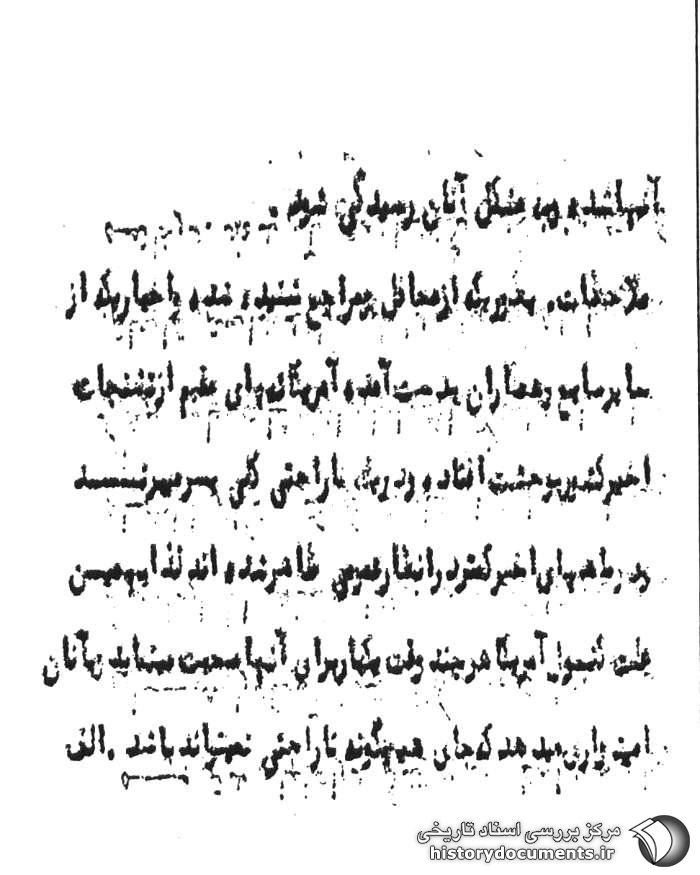 آنهاشده و به مشکل آنان رسیدگی شود.
ملاحظات. بطوریکه ازمحافل ومراجع شنیده شده و اخباریکه از
سایرمنابع وهمکاران بدست آمده آمریکائیهای مقیم ازتشنجات
اخیرکشوربوحشت افتاده ودریک ناراحتی کلی بسرمیبرند
ودرماههای اخیرکمتردرانظارعمومی ظاهرشده اند لذا بهمین
علت کنسول آمریکا هرچند وقت یکباربرای آنها صحبت مینماید وبآنان
امیدواری میدهد که جای هیچگونه ناراحتی نمیتواند باشد. الف
مرکز بررسی اسناد تاریخی
historydocuments.ir